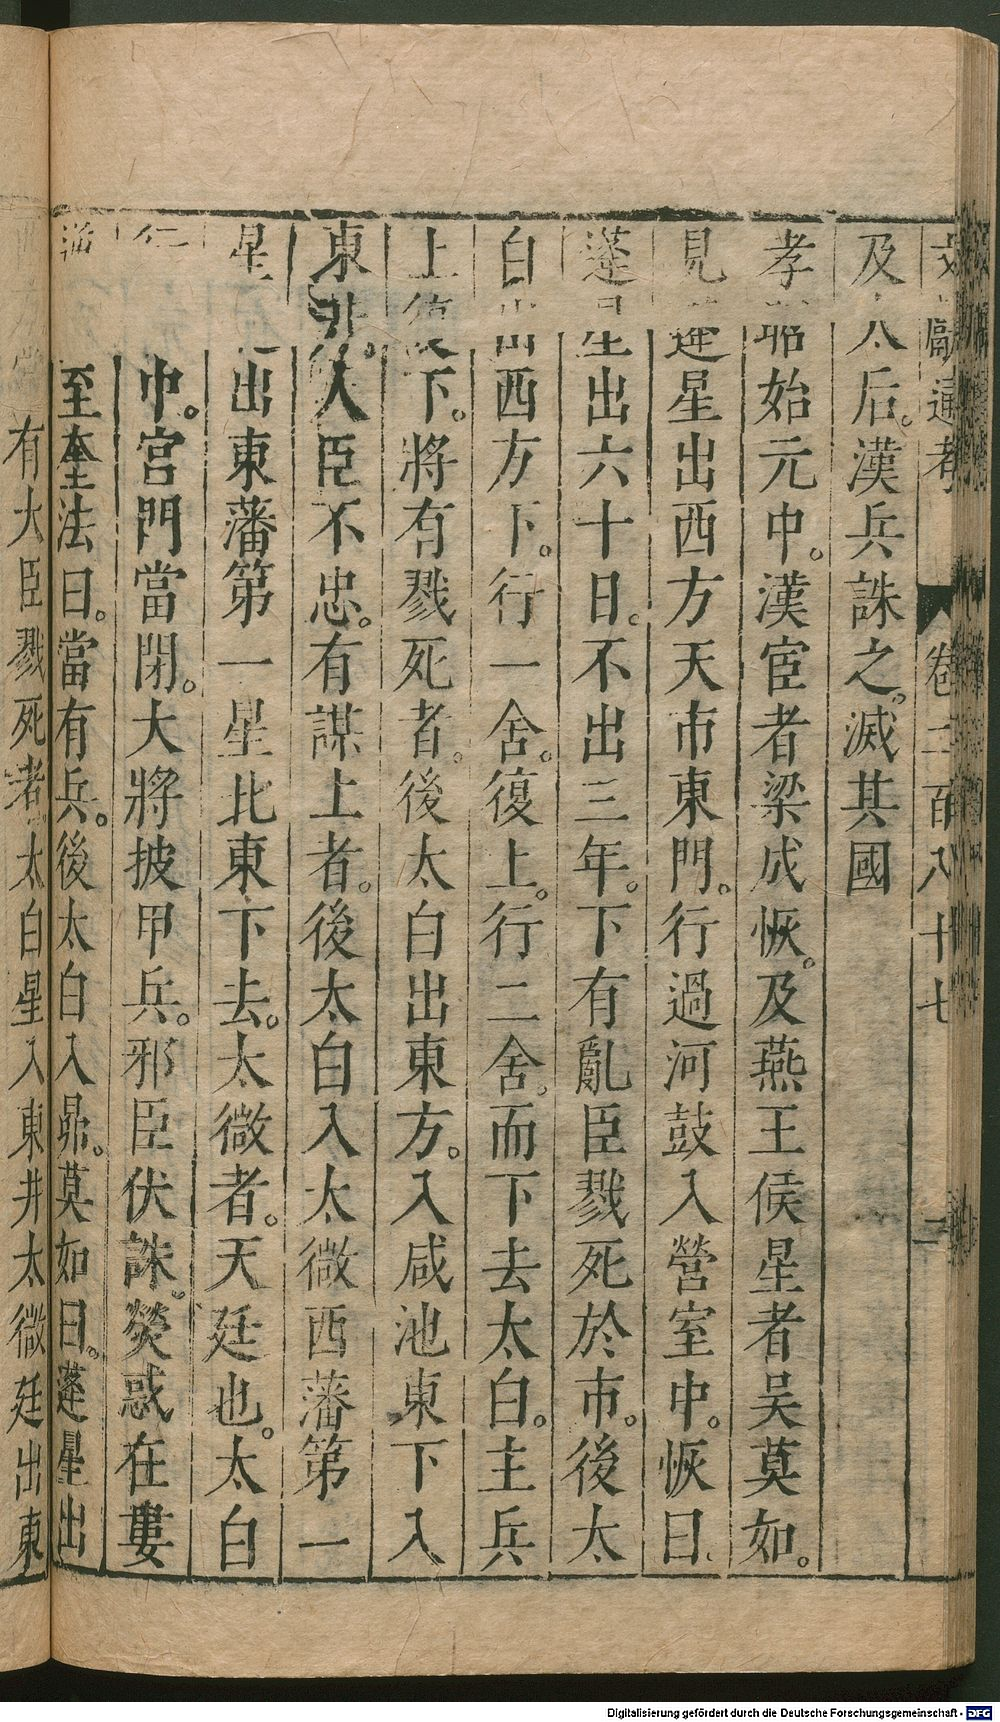 文獻通考 卷二百八十七 二
及太后。漢兵誅之。滅其國
孝昭始元中。漢宦者梁成恢。及燕王候星者吳莫如。
見蓬星出西方天市東門。行過河鼓入營室中。恢曰、
蓬星出六十日。不出三年。下有亂臣戮死於市。後太
白出西方下。行一舍。復上。行二舍。而下去太白。主兵
上復下。將有戮死者。後太白出東方。入咸池東下入
東井。人臣不忠。有謀上者。後太白入太微西藩第一
星 出東藩第一星北東下去。太微者。天廷也。太白
行 中。宮門當閉。大將披甲兵。邪臣伏誅。熒惑在婁
至奎法曰。當有兵。後太白入昴。莫如曰。蓬星出
有大臣戮死者太白星入東井太微廷出東
Digitalisierung gefördert durch die Deutsche Forschungsgemeinschaft - DFG